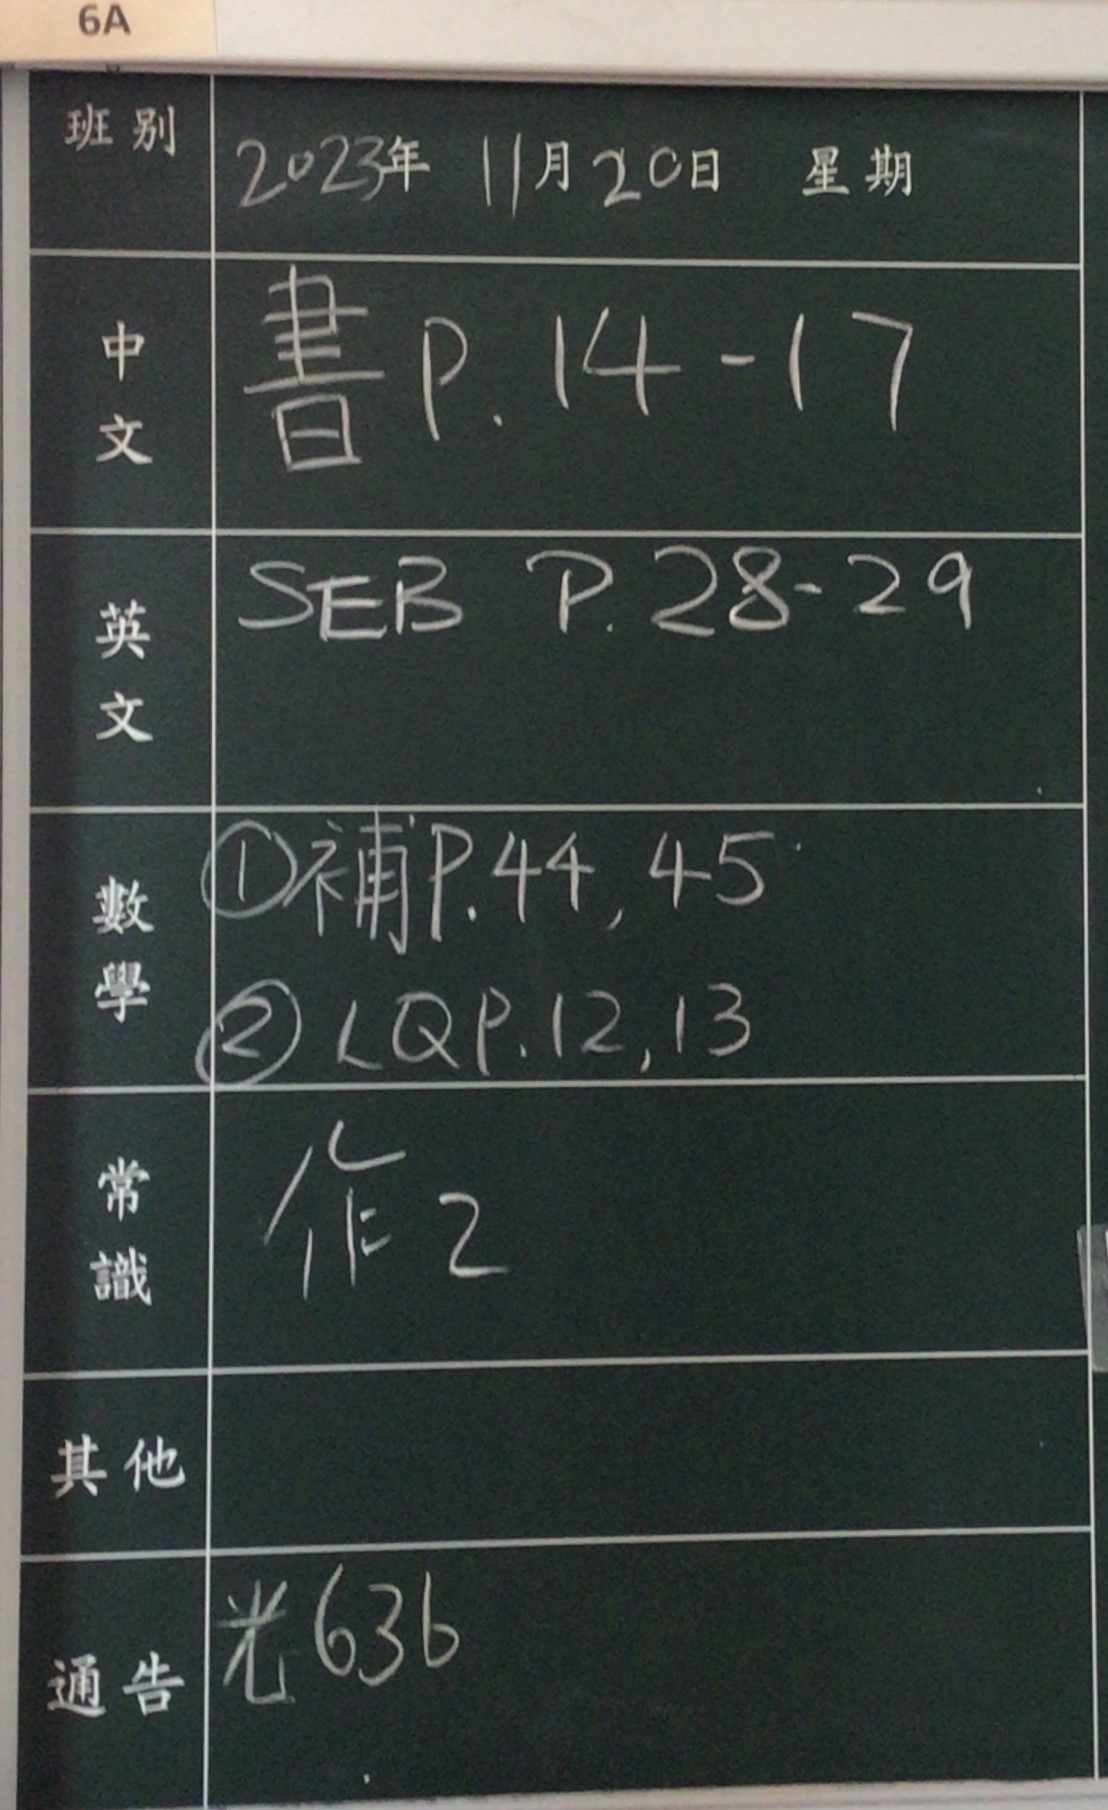 6A
班別
2023年 11月20日 星期
中文
書 P. 14-17
英文
SEB P. 28-29
數學
①補P.44, 45
② LQP.12, 13
常識
作2
其他
通告
光636